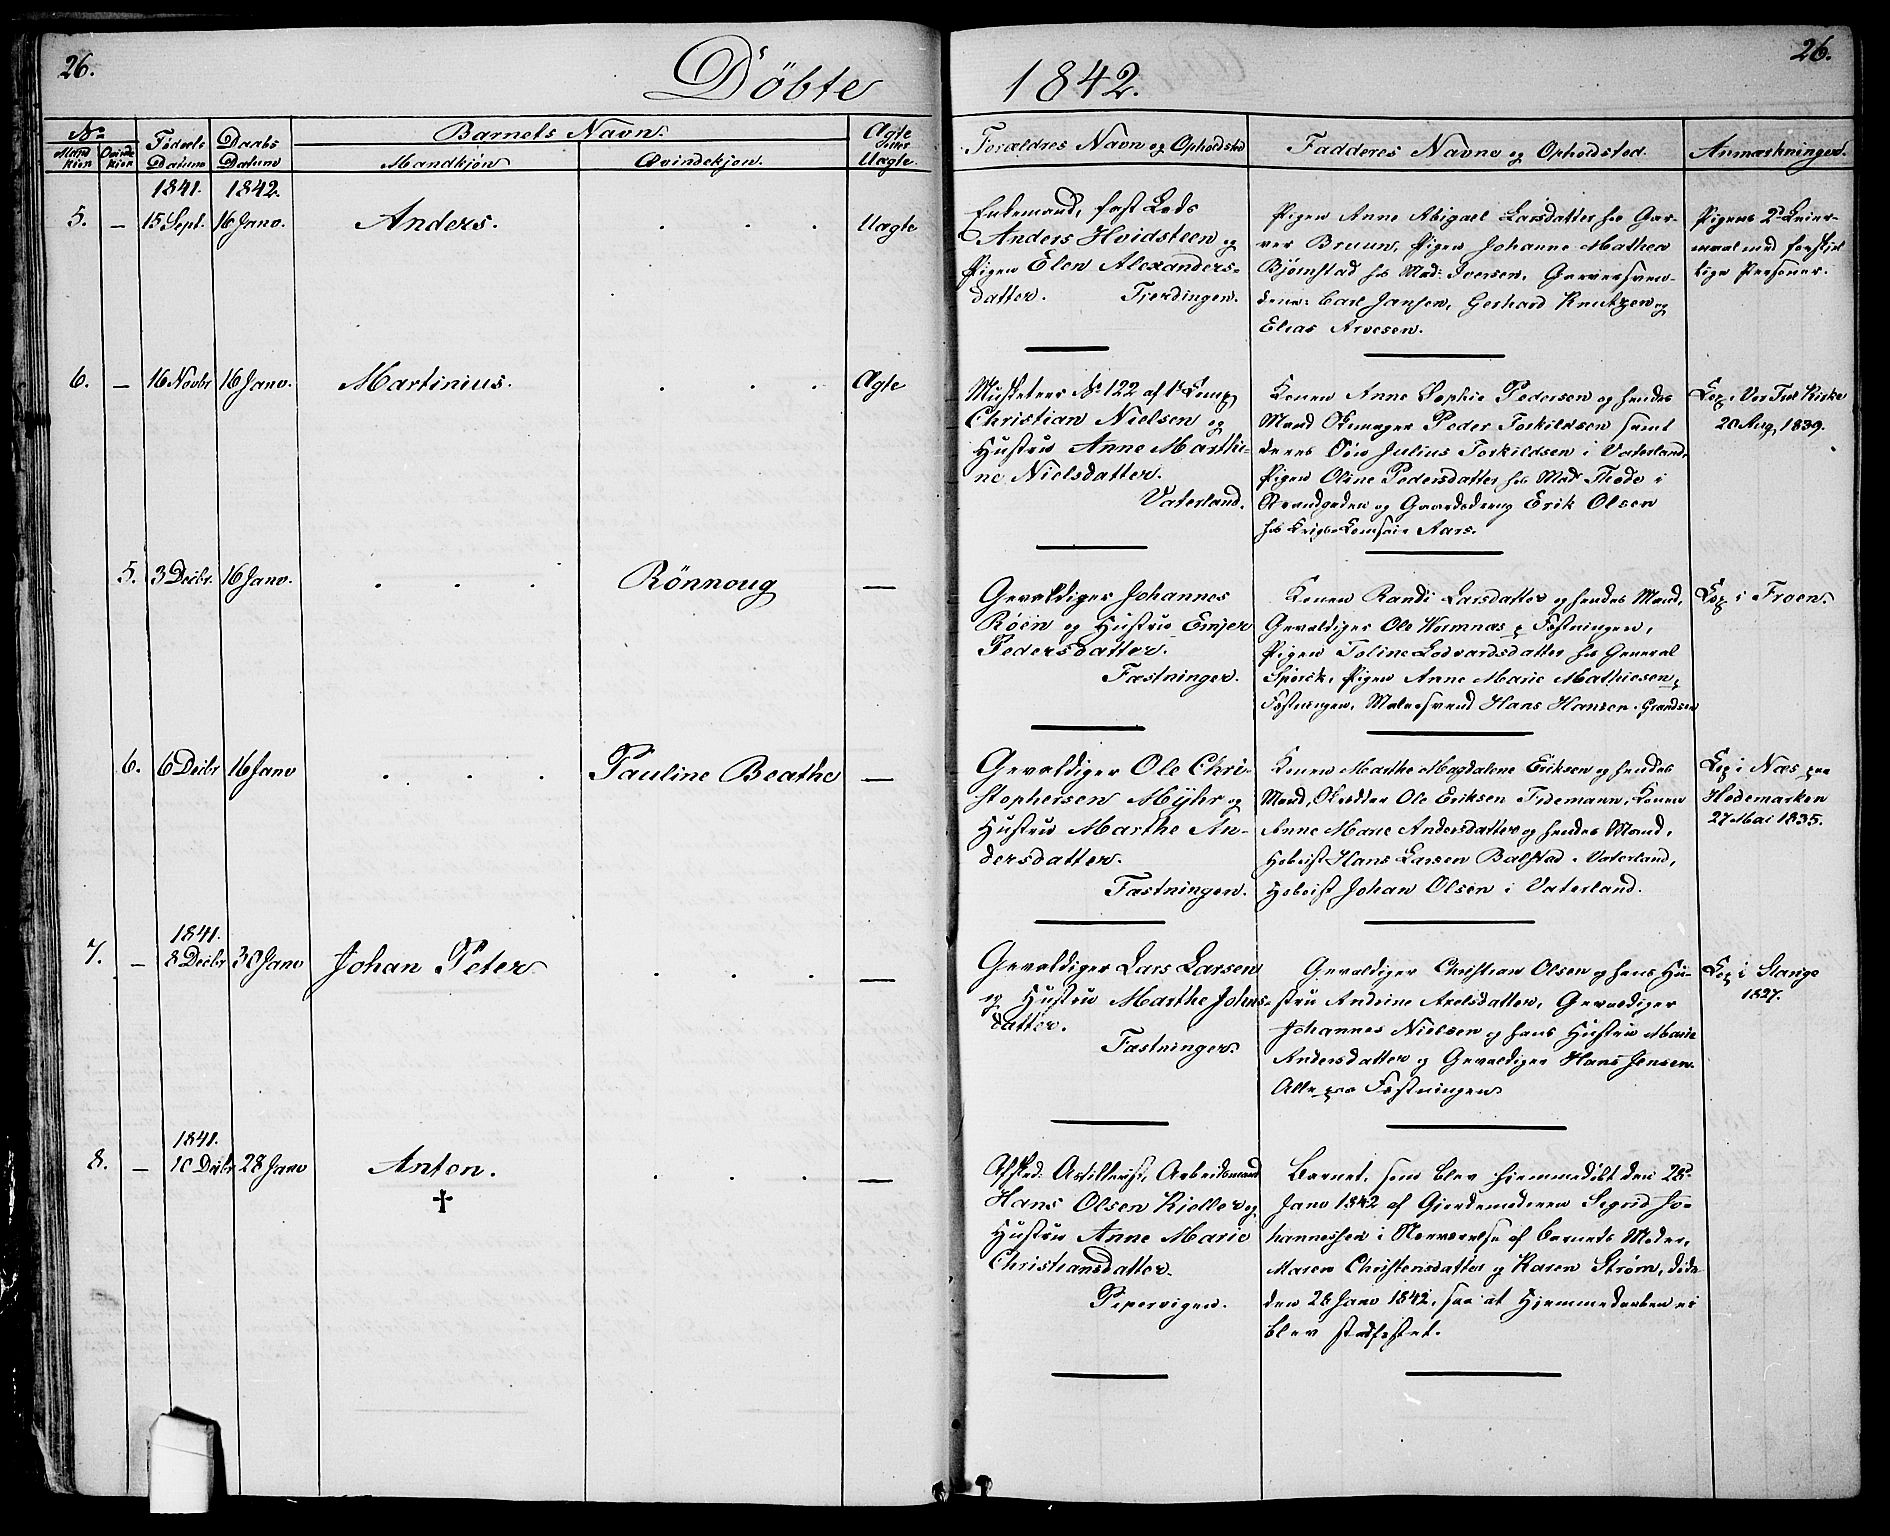 26.
Döbte
1842.
26.
No
Mand Kiön
Qvinde Kiön
Födsels Datum
Daabs Datum
Barnets Navn.
Mandkjön
Qvindekjön.
Ægte eller Uægte
Forældres Navn og Opholdsted
Fadderes Navne og Opholdsted.
Anmærkninger.
1841. 1842.
5. — 15 Sept. 16 Janv. Anders. . . . Uægte
Enkemand, fast Lods
Anders Hvidsteen og
Pigen Elen Alexanders-
datter. Fjerdingen.
Pigen Anne Abigael Larsdatter hos Gar-
ver Bruun, Pigen Johanne Mathea
Bjørnstad hos Mad: Iversen, Garversven-
dene: Carl Jansen, Gerhard Knutzen og
Elias Arvesen.
Pigens 2d Leier-
maal med forskjel
lige Personer.
6. — 16 Novbr 16 Janv. Martinius. . . . Ægte
Musketeer No 122 af 1st Comp
Christian Nielsen og
Hustru Anne Marthi-
ne Nielsdatter.
Vaterland.
Konen Anne Sophie Pedersen og hendes
Mand Skomager Peder Torkildsen samt
deres Søn Julius Torkildsen i Vaterland,
Pigen Oline Pedersdatter hos Mad Thode i
Strandgaden og Gaardsdreng Erik Olsen
hos Krigs-Comsair Aars.
Cop. i Vor Frel Kirke
20 Aug. 1839.
5. 3 Decbr. 16 Janv. . . . Rönnoug —
Gevaldiger Johannes
Röen og Hustru Emjer
Pedersdatter.
Fæstningen.
Konen Randi Larsdatter og hendes Mand,
Gevaldiger Ole Hamnæs p Fæstningen,
Pigen Toline Lodvardsdatter hos General
Spørck, Pigen Anne Marie Mathiesen p
Fæstningen, Malersvend Hans Hansen. Grændsen
Cop. i Froen.
6. 6 Decbr 16 Janv . . . Pauline Beathe —
Gevaldiger Ole Chri-
stophersen Mÿhr og
Hustru Marthe An-
dersdatter.
Fæstningen.
Konen Marthe Magdalene Eriksen og hendes
Mand, Skrædder Ole Eriksen Tidemann, Konen
Anne Marie Andersdatter og hendes Mand,
Hoboist Hans Larsen Balstad i Vaterland,
Hoboist Johan Olsen i Vaterland.
Cop i Næs paa
Hedemarken
27 Mai 1835.
1841.
7. — 8 Decbr 30 Janv Johan Peter. . . . —
Gevaldiger Lars Larsen
og Hustru Marthe Johns-
datter.
Fæstningen.
Gevaldiger Christian Olsen og hans Hu-
stru Andrine Axelsdatter, Gevaldiger
Johannes Nielsen og hans Hustru Marie
Andersdatter og Gevaldiger Hans Jensen.
Alle paa Fæstningen.
Cop i Stange
1827.
1841.
8. — 10 Decbr 28 Janv Anton. . . . —
†
Afsked: Artillerist, Arbeidsmand
Hans Olsen Kieller og
Hustru Anne Marie
Christiansdatter.
Pipervigen.
Barnet, som blev hjemmedöbt den 28d
Janv 1842 af Gjordemoderen Sigrid Jo-
hannessen i Nærværelse af Barnets Moder,
Maren Christensdatter og Karen Strøm, döde
den 28 Janv 1842, saa at Hjemmedaaben ei
blev stadfæstet.